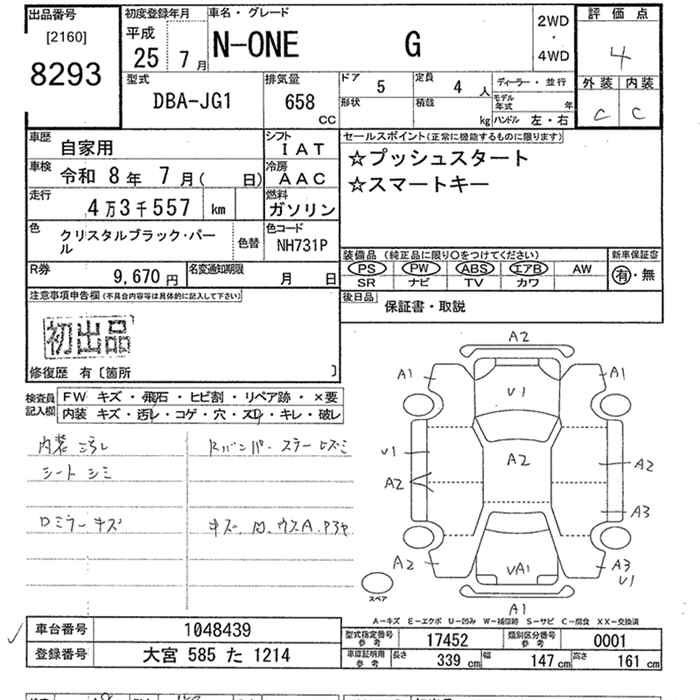 出品番号
[2160]
8293
初度登録年月
平成
25 7月
車名・グレード
N-ONE G
2WD
・
4WD
評価点
4
外装 内装
C C
型式
DBA-JG1
排気量
658
CC
ドア 5
定員 4 人
ディーラー・並行
形状
積載 kg
モデル年式 年
ハンドル 左・右
車歴 自家用
シフト
IAT
車検 令和 8年 7月( 日)
冷房
AAC
走行
4万3千557 km
燃料
ガソリン
色
クリスタルブラック・パール
色替
色コード
NH731P
R券 9,670円
名変通知期限 月 日
セールスポイント(正常に機能するものに限ります)
☆プッシュスタート
☆スマートキー
装備品(純正品に限り〇をつけてください)
PS PW ABS エアB AW
SR ナビ TV カワ
新車保証書
有・無
後日品 保証書・取説
注意事項申告欄(不具合内容等は具体的に記入して下さい)
初出品
修復歴 有〔箇所 〕
検査員記入欄
FW キズ・飛石・ヒビ割・リペア跡・×要
内装 キズ・汚レ・コゲ・穴・スレ・キレ・破レ
内装 ゴミ
シート シミ
Rバンパー
Dミラー キズ
キズ
A2
A1
A1
U1
U1
A2
A2
A2
A3
A2
UA1
A3
U1
A1
スペア
A-キズ E-エクボ U-凹み W-補修跡 S-サビ C-腐食 XX-交換済
車台番号 1048439
登録番号 大宮 585 た 1214
型式指定番号
参考
17452
類別区分番号
参考
0001
車庫証明用
参考
長さ 339cm
幅 147cm
高さ 161cm